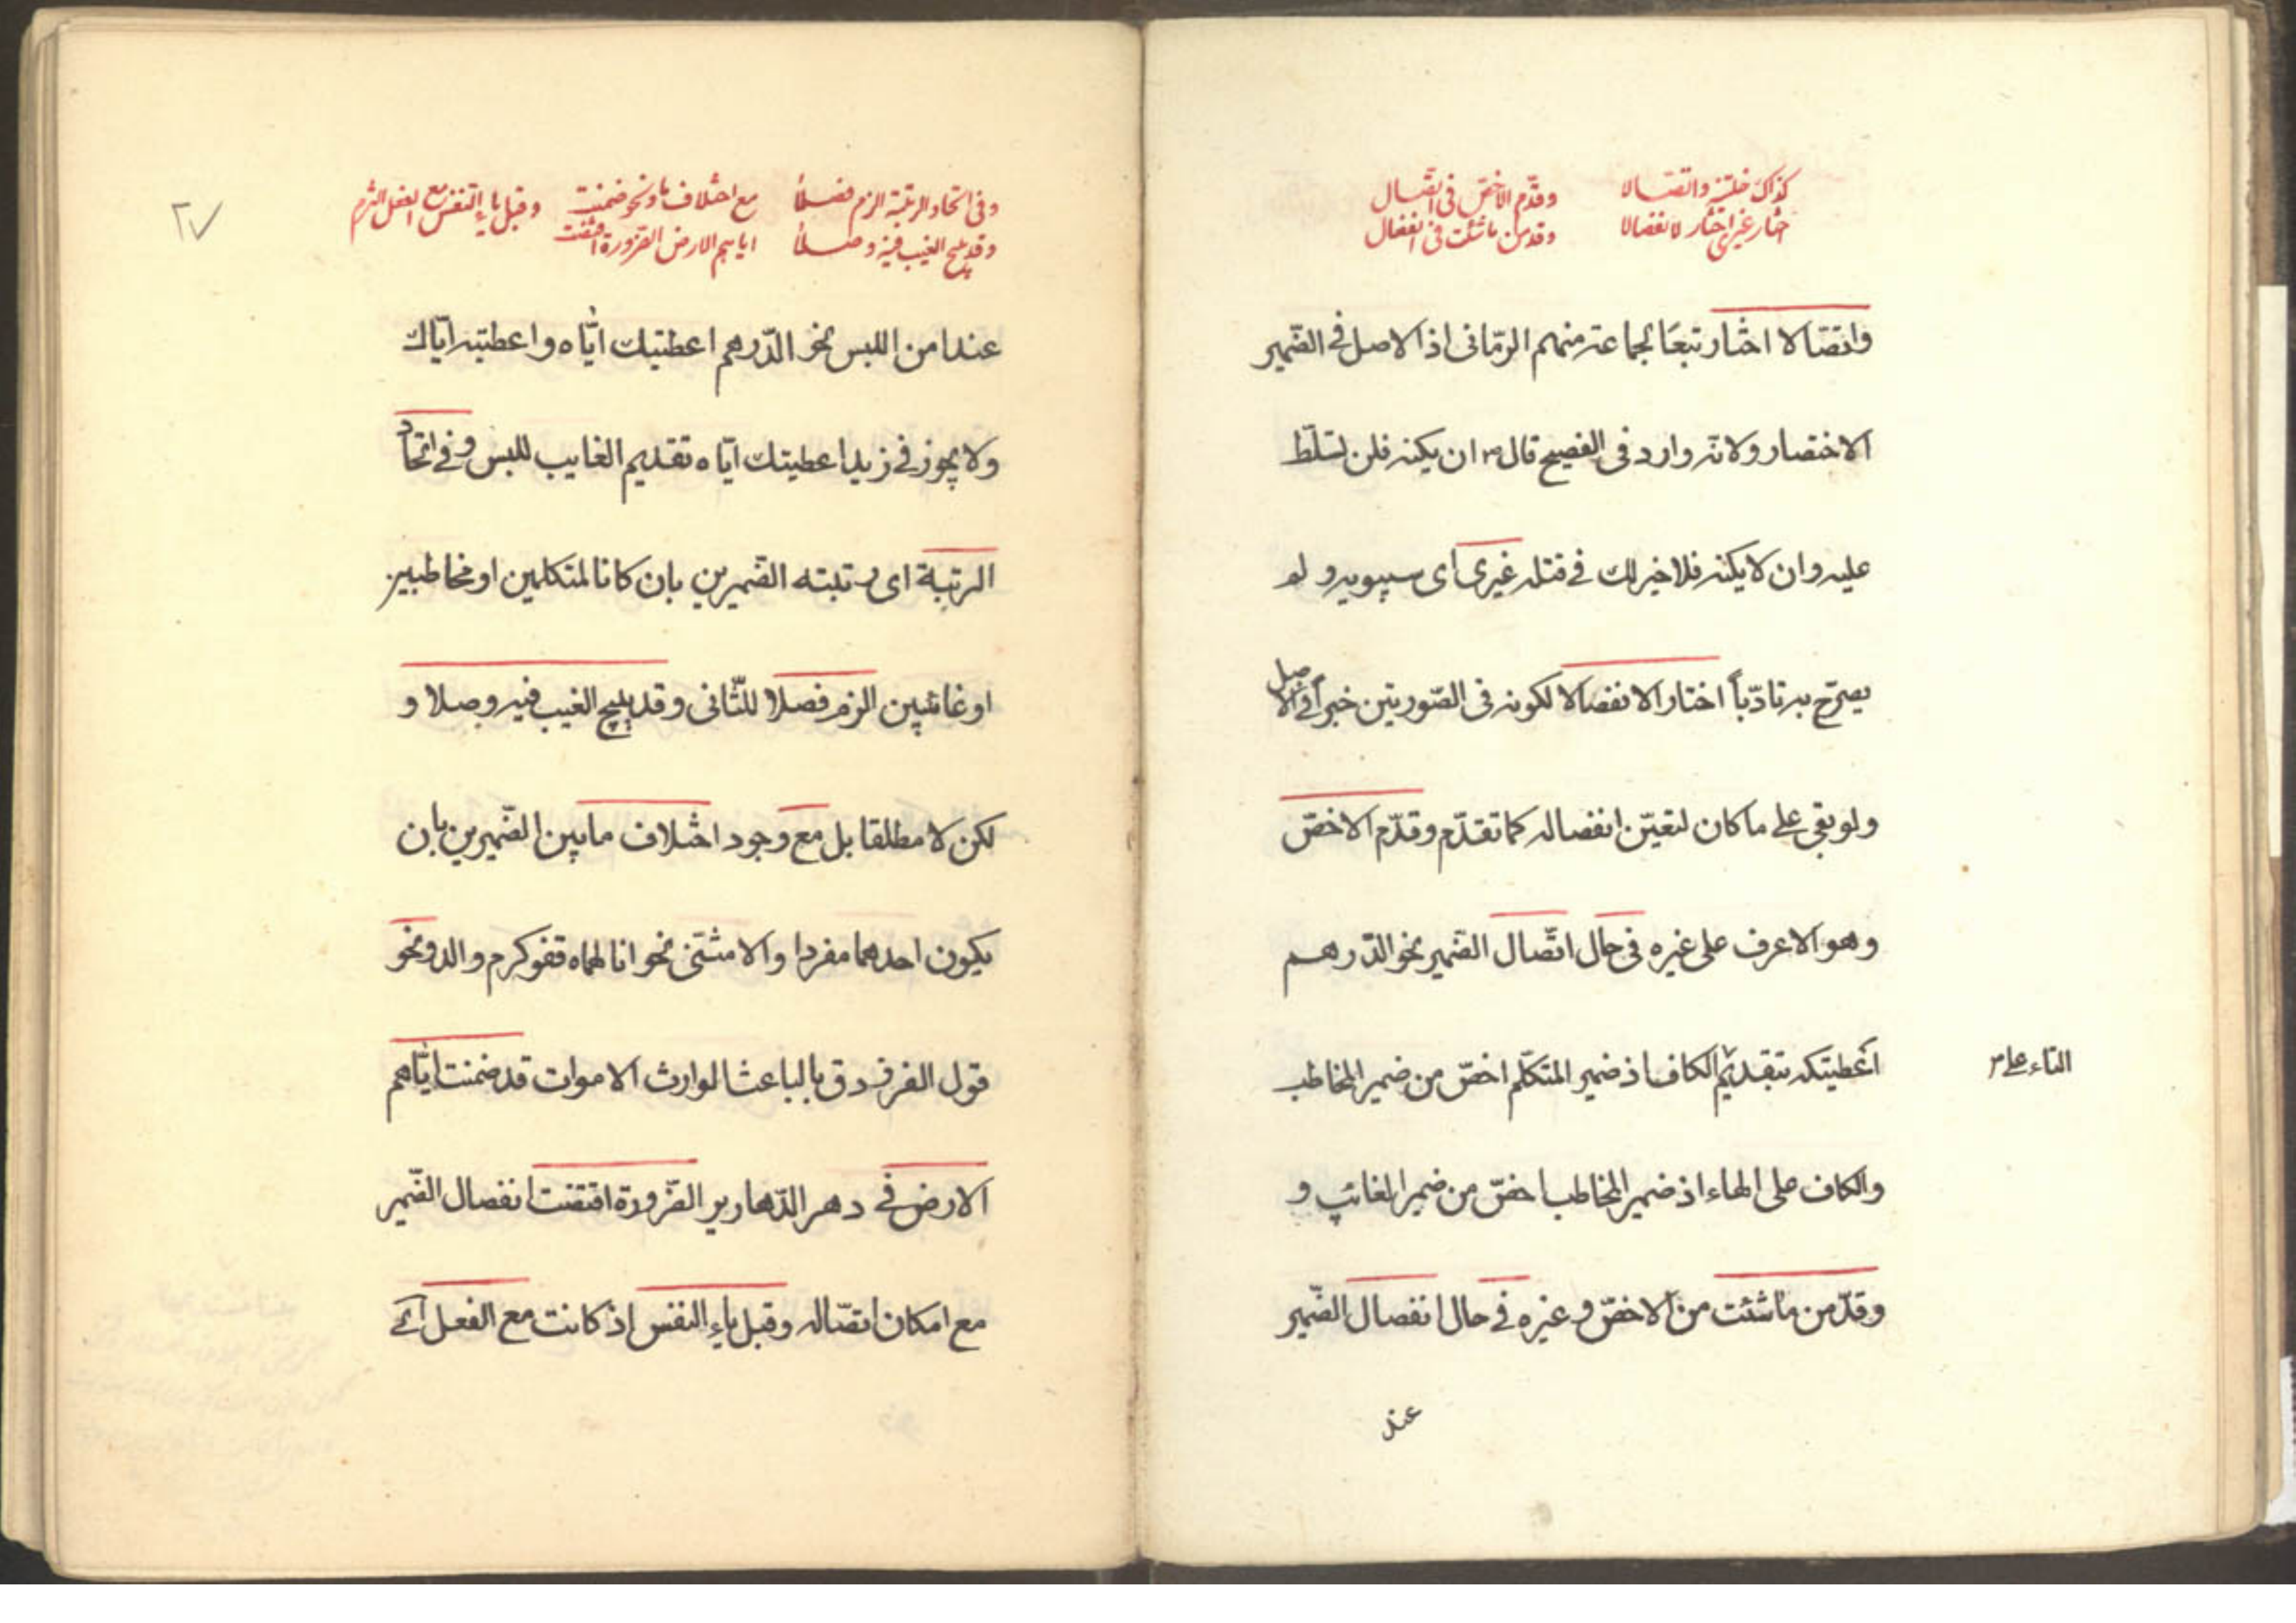 كذاك خلتنيه واتصالا
وقدّم الاخصّ فى اتصال
اختار غيرى اختار الانفصالا
وقدمن ما شئت فى انفصال
واتصالا اختار تبعًا لجماعة منهم الرمّانى اذ الاصل فى الضّمير
الاختصار ولانّه وارد فى الفصيح قال م ان يكنه فلن تسلّط
عليه وان لا يكنه فلا خير لك فى قتله غيرى اى سيبويه ولو
يصرّح به تادّباً اختار الانفصالا لكونه فى الصّورتين خبراً فى الاصل
ولو بقى على ما كان لتعيّن انفصاله كما تقدّم وقدّم الاخصّ
وهو الاعرف على غيره فى حال اتّصال الضّمير نحو الدّرهم
اعطيتكه بتقديم الكاف اذ ضمير المتكلّم اخصّ من ضمير المخاطب
التاء على م
والكاف على الهاء اذ ضمير المخاطب اخصّ من ضمير الغائب و
وقدّمن ما شئت من الاخصّ و غيره فى حال انفصال الضّمير
عند
٢٧
وفى اتحاد الرتبة الزم فصلاً
مع اختلاف ما ونحو ضمنت
وقبل ياء النفس مع الفعل التزم
وقد يبيح الغيب فيه وصلاً
اياهم الارض الضرورة اقتضت
عند امن اللبس نحو الدّرهم اعطيتك ايّاه واعطيته ايّاك
ولا يجوز فى زيد اعطيتك ايّاه تقديم الغايب للبس وفى اتّحاد
الرتبة اى رتبته الضّميرين بان كانا لمتكلمين او مخاطبين
او غائبين الزم فصلا للثّانى وقد يبيح الغيب فيه وصلا و
لكن لا مطلقا بل مع وجود اختلاف ما بين الضّميرين بان
يكون احدهما مفردا والا مثنّى نحو انا لهماه قفو كرم والد ونحو
قول الفرزدق بالباعث الوارث الاموات قد ضمنت ايّاهم
الارض فى دهر الدّهارير الضّرورة اقتضت انفصال الضّمير
مع امكان اتصّاله وقبل ياء النفس اذ كانت مع الفعل اى